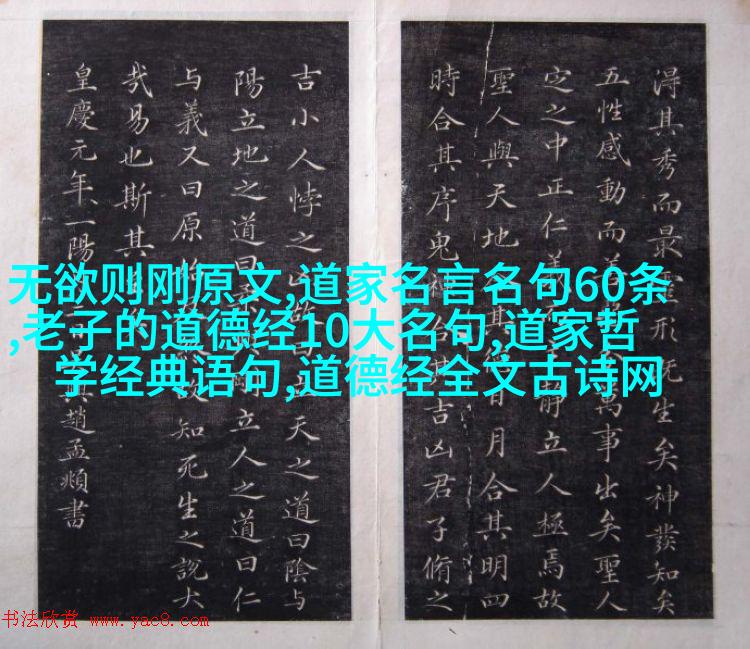 无欲则刚原文,道家名言名句60条
,老子的道德经10大名句,道家哲
学经典语句,道德经全文古诗网
淂其秀而最靈形既生矣神發知矣
五性感動而善萬事出矣聖人
定之中正仁義靜立人極焉故
聖人與天地合其德日月合其明四
時合其序鬼神合其吉凶君子脩之
吉小人悖之故曰天之道曰陰与
陽立地之道曰立人之道曰仁
与義又曰原始故知死生之說大
哉易也斯其
皇慶元年一陽趙孟頫書
书法欣赏 www.yac8.com